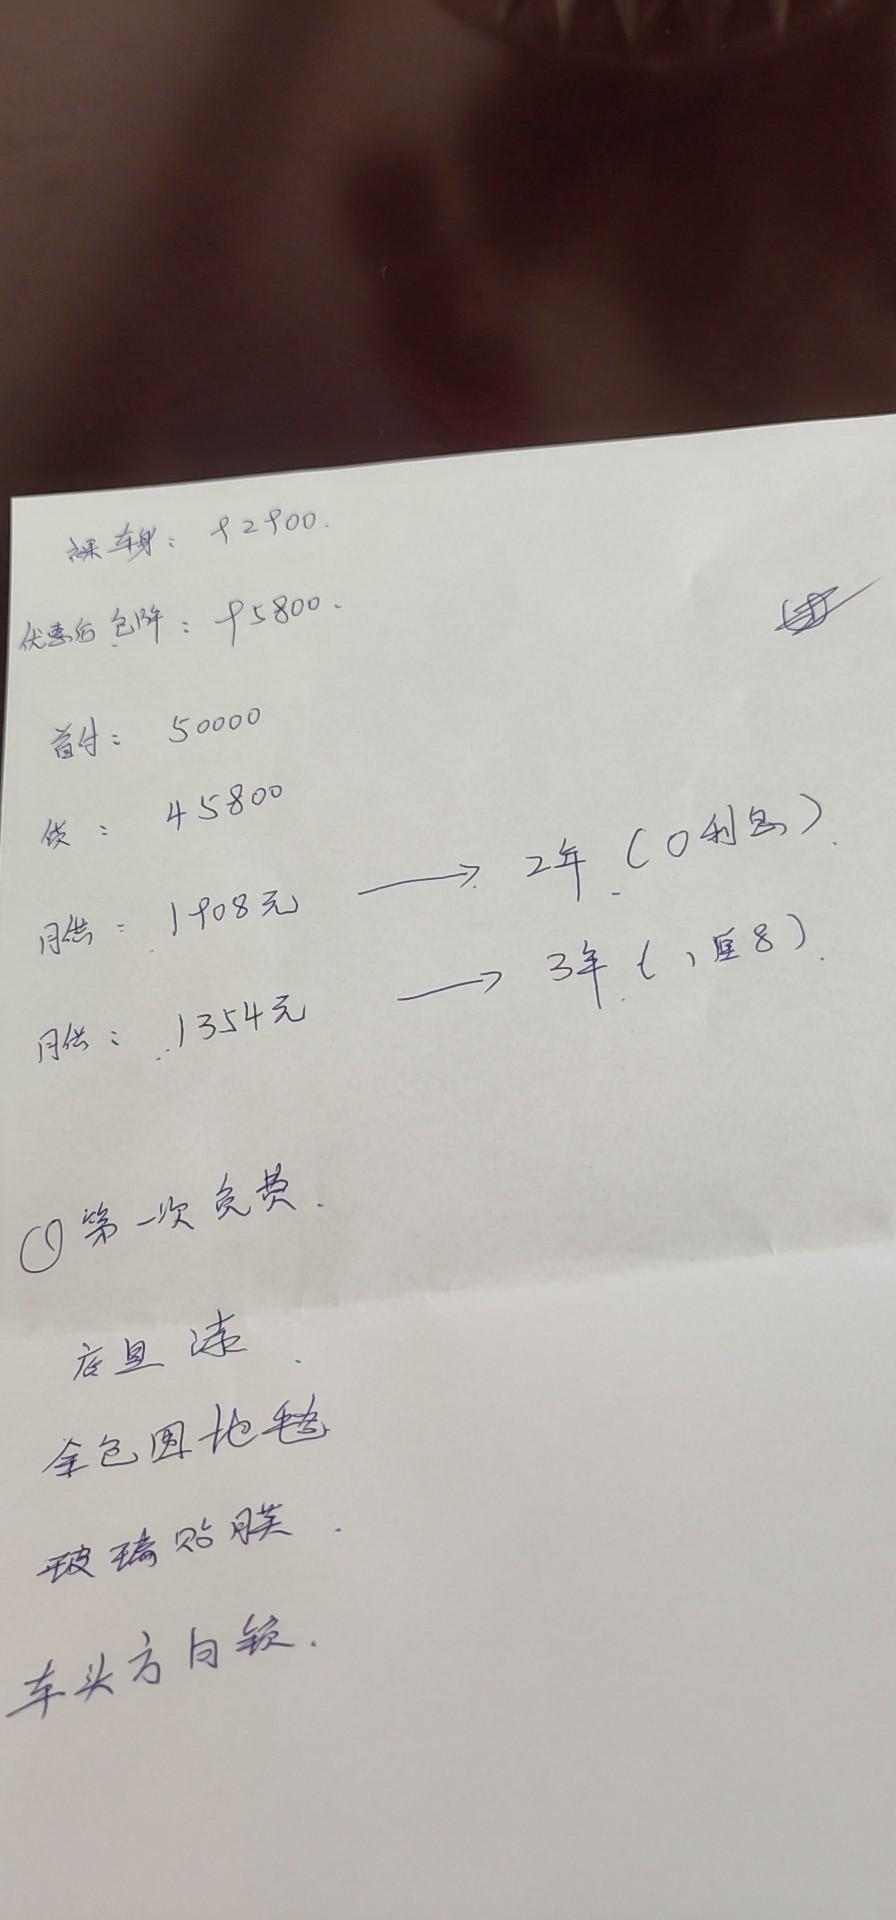 裸车身: 92900.
优惠后包牌: 95800.
首付: 50000
贷: 45800
月供: 1908元 → 2年 (0利息)
月供: 1354元 → 3年 (1厘8)
① 第一次免费.
底盘漆.
全包围地毯
玻璃贴膜.
车头方向锁.